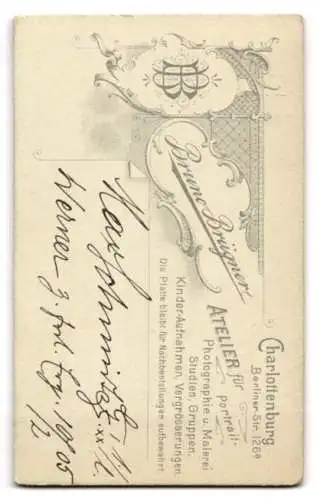 BB
Bruno Brügner
ATELIER für
Portrait-
Photographie u. Malerei
Studien, Gruppen.
Kinder-Aufnahmen, Vergrösserungen.
Die Platte bleibt für Nachbestellungen aufbewahrt.
Charlottenburg
Berliner-Str. 126a
Werner z. frdl.